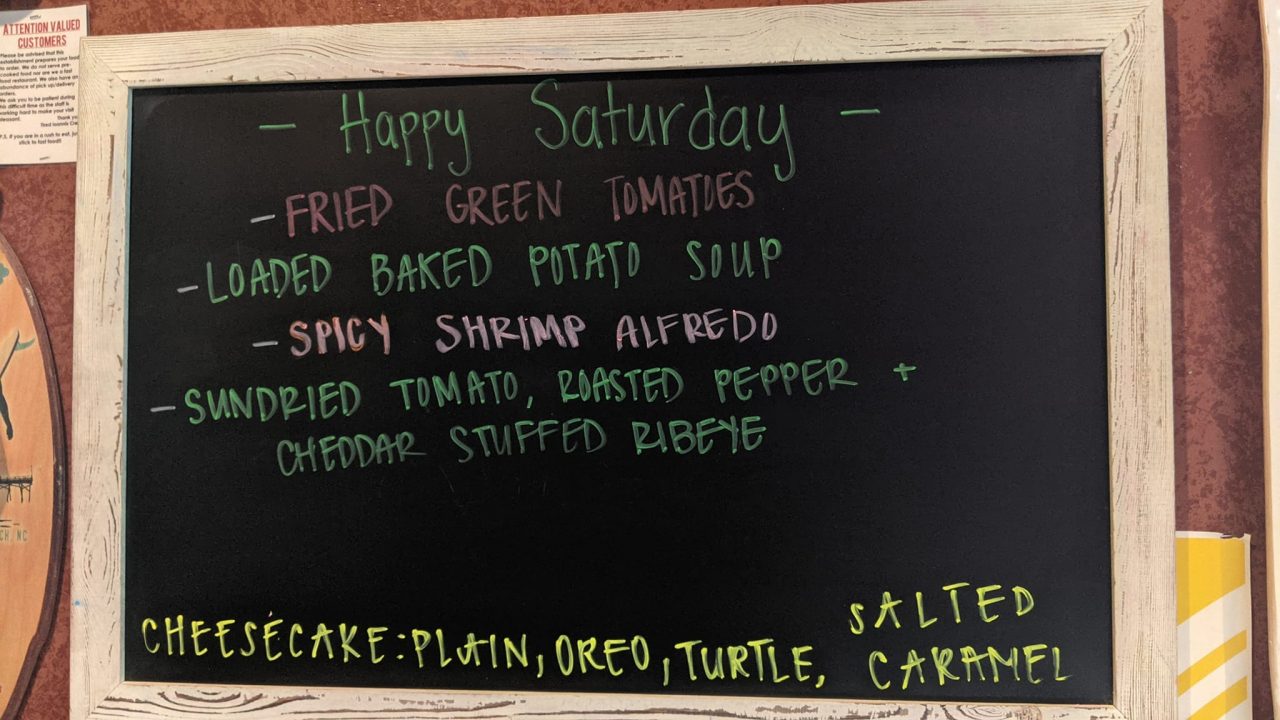 ATTENTION VALUED
CUSTOMERS
Please be advised that this
establishment prepares your food
to order. We do not serve pre-
cooked food nor are we a fast
food restaurant. We also have an
abundance of pick up/delivery
orders.
We ask you to be patient during
this difficult time as the staff is
working hard to make your visit
pleasant.
Thank yo
P.S. if you are in a rush to eat, jus
stick to fast food!!
- Happy Saturday -
- FRIED GREEN TOMATOES
- LOADED BAKED POTATO SOUP
- SPICY SHRIMP ALFREDO
- SUNDRIED TOMATO, ROASTED PEPPER +
CHEDDAR STUFFED RIBEYE
CHEESECAKE: PLAIN, OREO, TURTLE, SALTED
CARAMEL
CH, NC